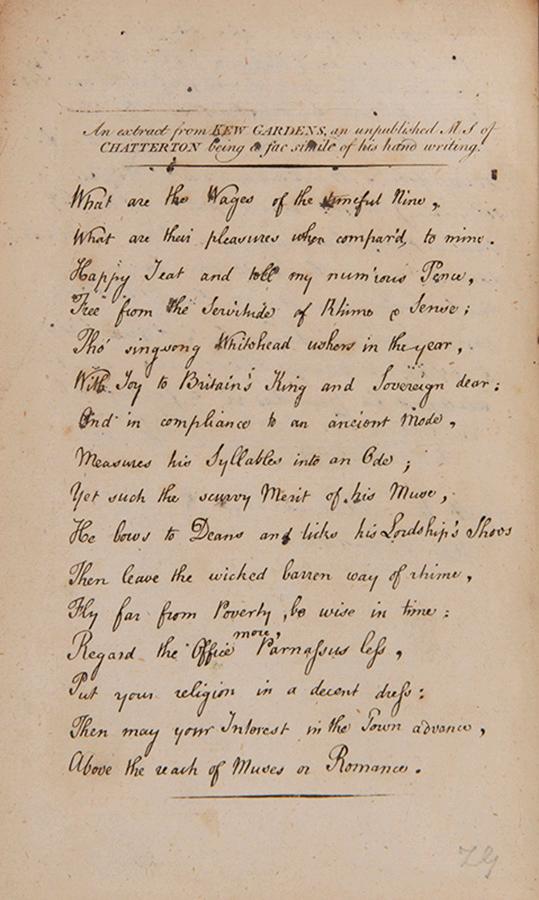 An extract from KEW GARDENS, an unpublished M.S of
CHATTERTON being a fac simile of his hand writing.
What are the Wages of the tuneful Nine,
What are their pleasures when compar'd to mine.
Happy I eat and tell my num'rous Pence,
Free from the Servitude of Rhime & Sense;
Tho' singsong Whitehead ushers in the year,
With Joy to Britain's King and Sovereign dear:
And in compliance to an ancient Mode,
Measures his Syllables into an Ode;
Yet such the scurvy Merit of his Muse,
He bows to Deans and licks his Lordship's Shoes
Then leave the wicked barren way of rhime,
Fly far from Poverty, be wise in time:
Regard the Office more, Parnassus less,
Put your religion in a decent dress:
Then may your Interest in the Town advance,
Above the reach of Muses or Romance.